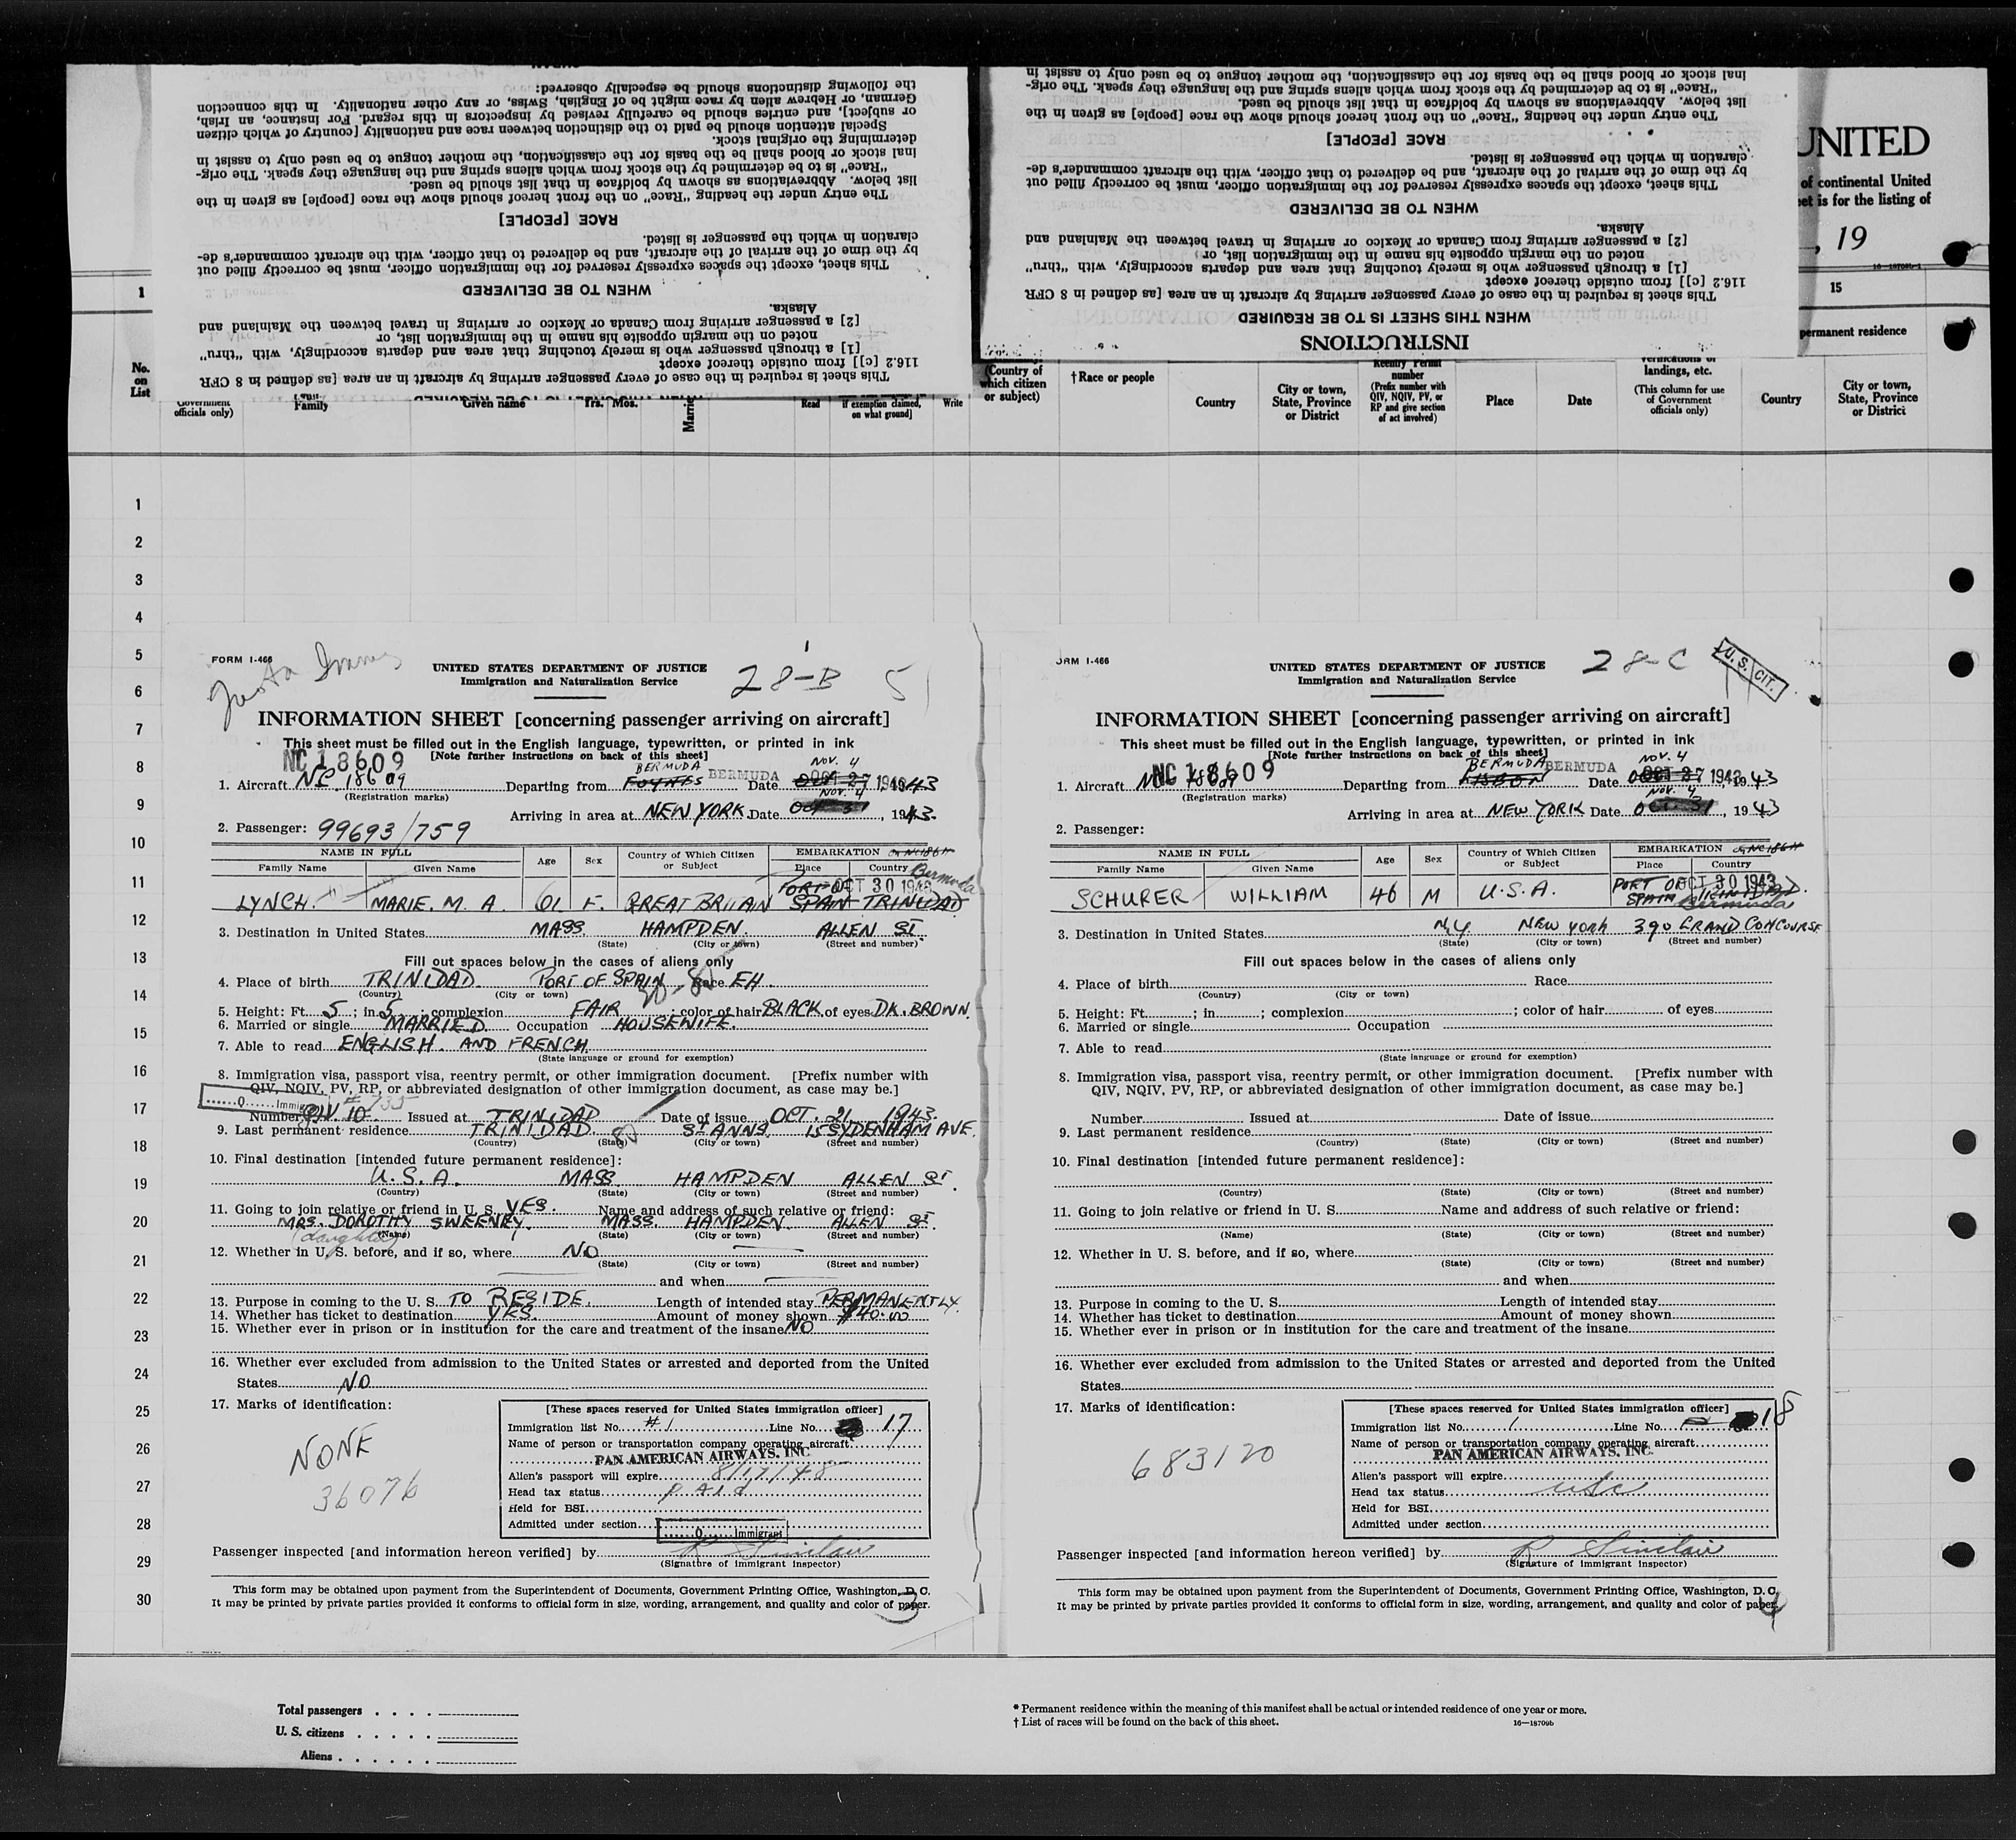 the following distinctions should be especially observed:
German, or Hebrew alien by race might be of English, Swiss, or any other nationality. In this connection
or subject], and entries should be carefully revised by inspectors in this regard. For instance, an Irish,
Special attention should be paid to the distinction between race and nationality [country of which citizen
determining the original stock.
inal stock or blood shall be the basis for the classification, the mother tongue to be used only to assist in
"Race" is to be determined by the stock from which aliens spring and the language they speak. The orig-
list below. Abbreviations as shown by boldface in that list should be used.
The entry under the heading "Race" on the front hereof should show the race [people] as given in the
RACE [PEOPLE]
claration in which the passenger is listed.
by the time of the arrival of the aircraft, and be delivered to that officer, with the aircraft commander's de-
This sheet, except the spaces expressly reserved for the immigration officer, must be correctly filled out
WHEN TO BE DELIVERED
Alaska.
[2] a passenger arriving from Canada or Mexico or arriving in travel between the Mainland and
noted on the margin opposite his name in the immigration list, or
[1] a through passenger who is merely touching that area and departs accordingly, with "thru"
116.2 [c]] from outside thereof except
This sheet is required in the case of every passenger arriving by aircraft in an area [as defined in 8 CFR
inal stock or blood shall be the basis for the classification, the mother tongue to be used only to assist in
"Race" is to be determined by the stock from which aliens spring and the language they speak. The orig-
list below. Abbreviations as shown by boldface in that list should be used.
The entry under the heading "Race" on the front hereof should show the race [people] as given in the
RACE [PEOPLE]
claration in which the passenger is listed.
by the time of the arrival of the aircraft, and be delivered to that officer, with the aircraft commander's de-
This sheet, except the spaces expressly reserved for the immigration officer, must be correctly filled out
WHEN TO BE DELIVERED
Alaska.
[2] a passenger arriving from Canada or Mexico or arriving in travel between the Mainland and
noted on the margin opposite his name in the immigration list, or
[1] a through passenger who is merely touching that area and departs accordingly, with "thru"
116.2 [c]] from outside thereof except
This sheet is required in the case of every passenger arriving by aircraft in an area [as defined in 8 CFR
WHEN THIS SHEET IS TO BE REQUIRED
INSTRUCTIONS
UNITED
of continental United
et is for the listing of
, 19
1 15
permanent residence
No. on List
Government officials only) Family Given name Yrs. Mos. Married Read if exemption claimed, on what ground] Write
(Country of which citizen or subject) † Race or people Country City or town, State, Province or District Reentry Permit number (Prefix number with QIV, NQIV, PV, or RP and give section of act involved) Place Date verifications of landings, etc. (This column for use of Government officials only) Country City or town, State, Province or District
1
2
3
4
5
6
7
8
9
10
11
12
13
14
15
16
17
18
19
20
21
22
23
24
25
26
27
28
29
30
FORM I-466
UNITED STATES DEPARTMENT OF JUSTICE 28-B 5
Immigration and Naturalization Service
INFORMATION SHEET [concerning passenger arriving on aircraft]
This sheet must be filled out in the English language, typewritten, or printed in ink
[Note further instructions on back of this sheet]
NC 18609 BERMUDA NOV. 4
1. Aircraft NC 18609 Departing from FOYNES BERMUDA Date OCT 27 1943
(Registration marks) NOV. 4
Arriving in area at NEW YORK Date OCT 31, 1943.
2. Passenger: 99693/759
NAME IN FULL Age Sex Country of Which Citizen or Subject EMBARKATION
Family Name Given Name Place Country
PORT OF OCT 30 1943 Bermuda
LYNCH MARIE. M. A. 61 F. GREAT BRITAIN SPAIN TRINIDAD
3. Destination in United States MASS HAMPDEN ALLEN ST.
(State) (City or town) (Street and number)
Fill out spaces below in the cases of aliens only
4. Place of birth TRINIDAD PORT OF SPAIN Race EH.
(Country) (City or town)
5. Height: Ft. 5; in 5; complexion FAIR; color of hair BLACK of eyes DK. BROWN.
6. Married or single MARRIED Occupation HOUSEWIFE.
7. Able to read ENGLISH. AND FRENCH.
(State language or ground for exemption)
8. Immigration visa, passport visa, reentry permit, or other immigration document. [Prefix number with
QIV, NQIV, PV, RP, or abbreviated designation of other immigration document, as case may be.]
Number QIV 10 # 735 Issued at TRINIDAD Date of issue OCT. 21 1943.
9. Last permanent residence TRINIDAD. ST ANNS. 15 SYDENHAM AVE.
(Country) (State) (City or town) (Street and number)
10. Final destination [intended future permanent residence]:
U.S.A. MASS HAMPDEN ALLEN ST.
(Country) (State) (City or town) (Street and number)
11. Going to join relative or friend in U. S. YES. Name and address of such relative or friend:
MRS. DOROTHY SWEENEY. MASS. HAMPDEN. ALLEN ST.
(daughter) (Name) (State) (City or town) (Street and number)
12. Whether in U. S. before, and if so, where NO
(State) (City or town) (Street and number)
and when
13. Purpose in coming to the U. S. TO RESIDE. Length of intended stay PERMANENTLY.
14. Whether has ticket to destination YES. Amount of money shown $40.00
15. Whether ever in prison or in institution for the care and treatment of the insane NO
16. Whether ever excluded from admission to the United States or arrested and deported from the United
States NO
17. Marks of identification:
NONE
36076
[These spaces reserved for United States immigration officer]
Immigration list No. #1 Line No. 17
Name of person or transportation company operating aircraft
PAN AMERICAN AIRWAYS, INC
Alien's passport will expire 8/17/48
Head tax status paid
Held for BSI
Admitted under section 0 Immigrant
Passenger inspected [and information hereon verified] by R Sinclair
(Signature of immigrant inspector)
This form may be obtained upon payment from the Superintendent of Documents, Government Printing Office, Washington, D. C.
It may be printed by private parties provided it conforms to official form in size, wording, arrangement, and quality and color of paper.
3
ORM I-466
UNITED STATES DEPARTMENT OF JUSTICE 28-C U.S. CIT.
Immigration and Naturalization Service
INFORMATION SHEET [concerning passenger arriving on aircraft]
This sheet must be filled out in the English language, typewritten, or printed in ink
[Note further instructions on back of this sheet]
NC 18609 BERMUDA NOV. 4
1. Aircraft NC 18609 Departing from LISBON BERMUDA Date OCT 27 1943
(Registration marks) NOV. 4
Arriving in area at NEW YORK Date OCT. 31, 1943
2. Passenger:
NAME IN FULL Age Sex Country of Which Citizen or Subject EMBARKATION
Family Name Given Name Place Country
PORT OF OCT 30 1943
SCHURER WILLIAM 46 M U.S.A. SPAIN TRINIDAD. Bermuda
3. Destination in United States N.Y. NEW YORK 390 GRAND CONCOURSE
(State) (City or town) (Street and number)
Fill out spaces below in the cases of aliens only
4. Place of birth Race
(Country) (City or town)
5. Height: Ft. ; in ; complexion ; color of hair of eyes
6. Married or single Occupation
7. Able to read
(State language or ground for exemption)
8. Immigration visa, passport visa, reentry permit, or other immigration document. [Prefix number with
QIV, NQIV, PV, RP, or abbreviated designation of other immigration document, as case may be.]
Number Issued at Date of issue
9. Last permanent residence
(Country) (State) (City or town) (Street and number)
10. Final destination [intended future permanent residence]:
(Country) (State) (City or town) (Street and number)
11. Going to join relative or friend in U. S. Name and address of such relative or friend:
(Name) (State) (City or town) (Street and number)
12. Whether in U. S. before, and if so, where
(State) (City or town) (Street and number)
and when
13. Purpose in coming to the U. S. Length of intended stay
14. Whether has ticket to destination Amount of money shown
15. Whether ever in prison or in institution for the care and treatment of the insane
16. Whether ever excluded from admission to the United States or arrested and deported from the United
States
17. Marks of identification:
683120
[These spaces reserved for United States immigration officer]
Immigration list No. 1 Line No. 18
Name of person or transportation company operating aircraft
PAN AMERICAN AIRWAYS, INC.
Alien's passport will expire
Head tax status usc
Held for BSI
Admitted under section
Passenger inspected [and information hereon verified] by R Sinclair
(Signature of immigrant inspector)
This form may be obtained upon payment from the Superintendent of Documents, Government Printing Office, Washington, D. C.
It may be printed by private parties provided it conforms to official form in size, wording, arrangement, and quality and color of paper.
4
Total passengers
U. S. citizens
Aliens
* Permanent residence within the meaning of this manifest shall be actual or intended residence of one year or more.
† List of races will be found on the back of this sheet.
16—18709b